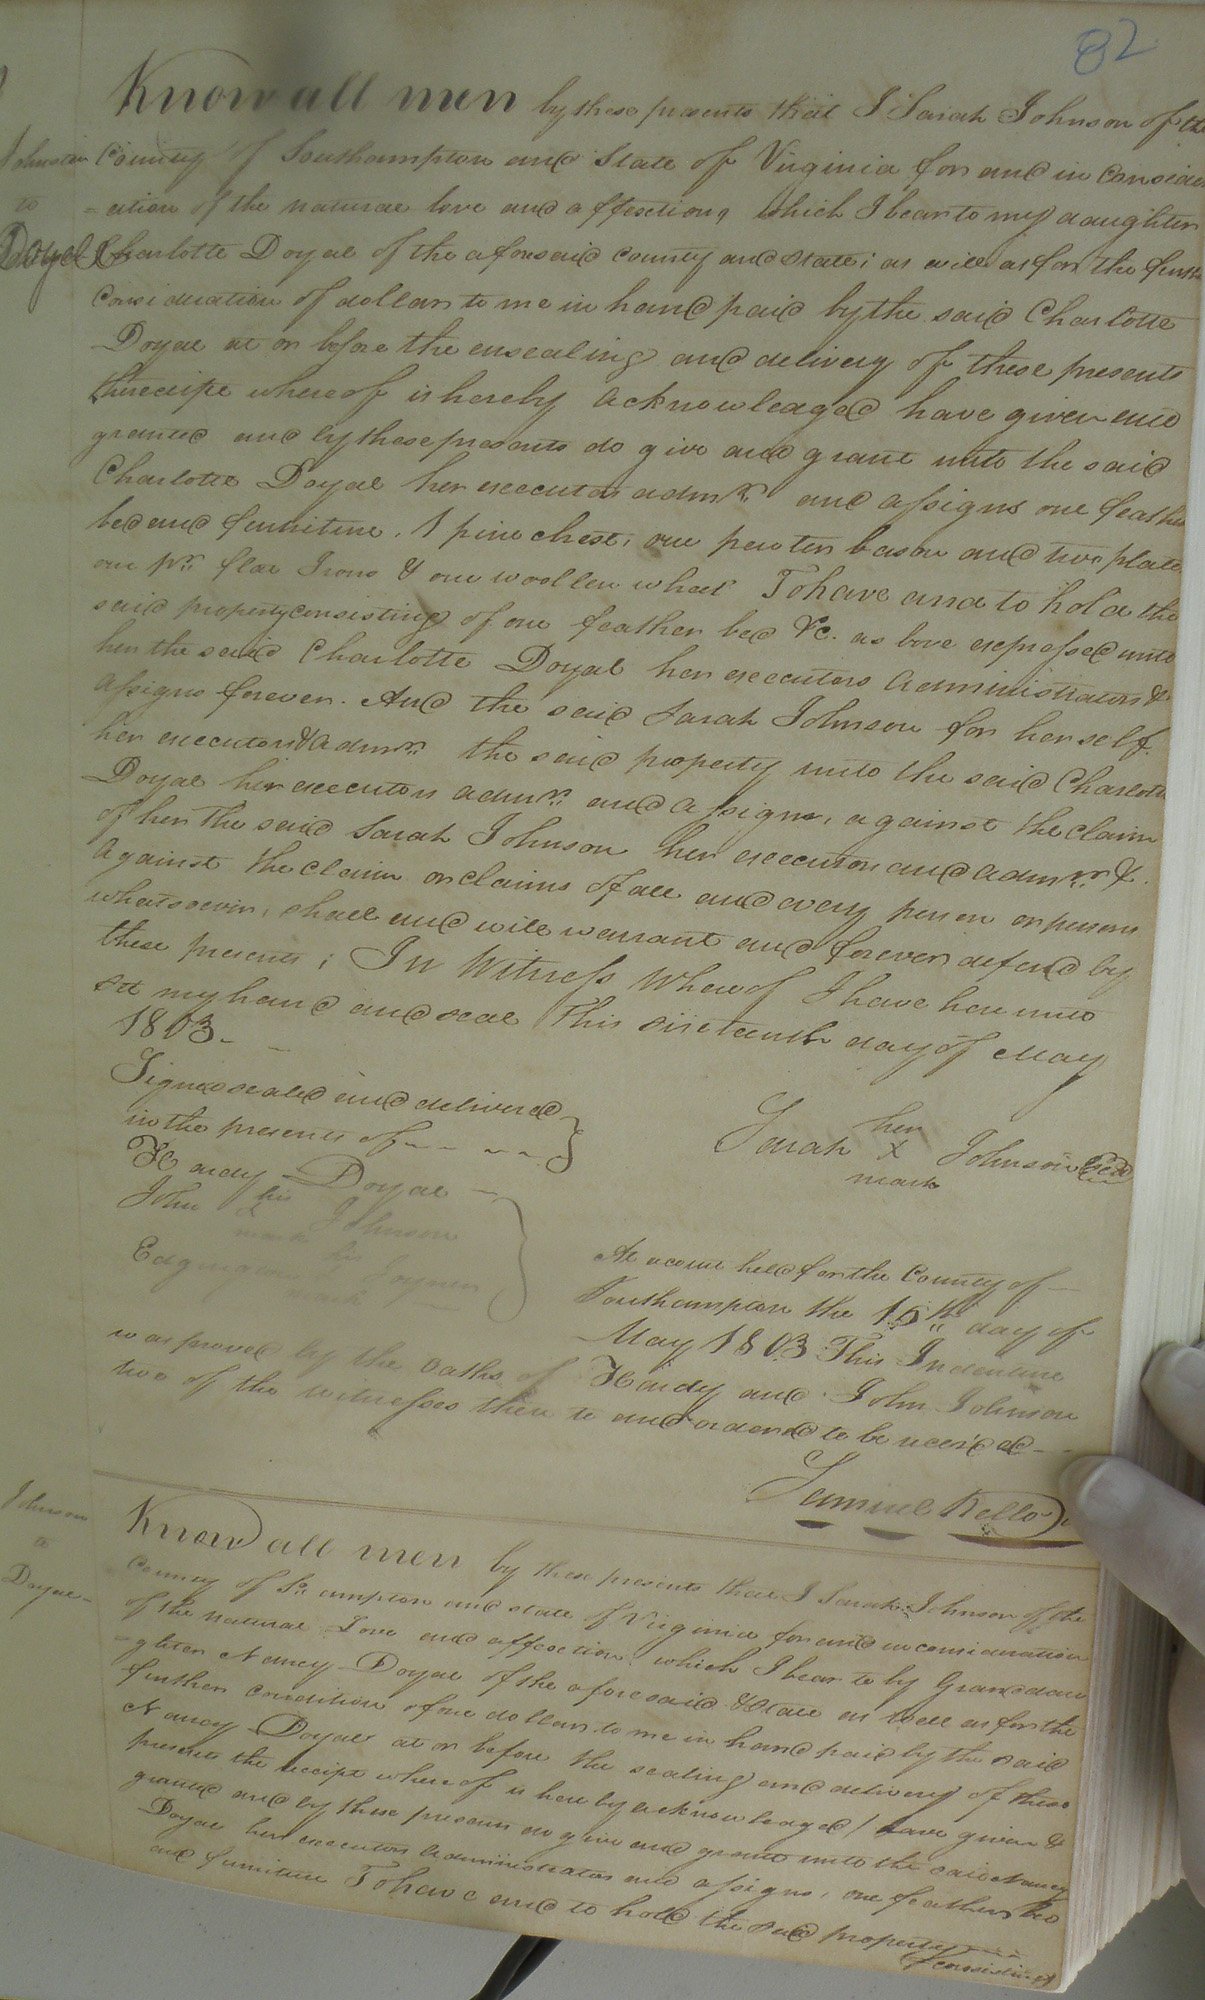 82
Know all men by these presents that I Sarah Johnson of the
Johnson
to
Doyel
County of Southampton and State of Virginia for and in Consider
=ation of the natural love and affections which I bear to my daughter
Charlotte Doyal of the aforesaid county and state; as well as for the furth
Consideration of dollars to me in hand paid by the said Charlotte
Doyal at or before the ensealing and delivery of these presents
the receipt whereof is hereby acknowledged have given and
granted and by these presents do give and grant unto the said
Charlotte Doyal her executors admrs. and assigns one feather
bed and furniture, 1 pine chest, one pewter bason and two plate
one pr. flat Irons & one woollen wheel To have and to hold the
said property consisting of one feather bed &c. as bove expressed unto
her the said Charlotte Doyal her executors administrators &
assigns forever. And the said Sarah Johnson for herself
her executors & admrs. the said property unto the said Charlotte
Doyal her executors admrs. and assigns, against the claim
of her the said Sarah Johnson her executors and admrs. &
against the claim or claims of all and every person or persons
whatsoever, shall and will warrant and forever defend by
these presents; In Witness Whereof I have here unto
set my hand and seal this sixteenth day of May
1803.
Signed sealed and delivered
in the presents of
Hardy Doyal
John his Johnson
mark
his
Joyner
mark
Sarah her X mark Johnson Seal
At a court held for the County of
Southampton the 16th day of
May 1803 This Indenture
was proved by the oaths of Hardy and John Johnson
two of the witnesses there to and ordered to be recorded
Samuel Kello
Johnson
to
Doyal
Know all men by these presents that I Sarah Johnson of the
County of So. ampton and state of Virginia for and in consideration
of the natural Love and affection which I bear to by Grandau
=ghter Nancy Doyal of the aforesaid & State as well as for the
further condition of one dollar to me in hand paid by the said
Nancy Doyal at or before the sealing and delivery of these
presents the receipt whereof is here by acknowledged / have given &
granted and by these presents do give and grant unto the said Nancy
Doyal her executors administrators and assigns, one feather bed
and furniture To have and to hold the said property
consisting